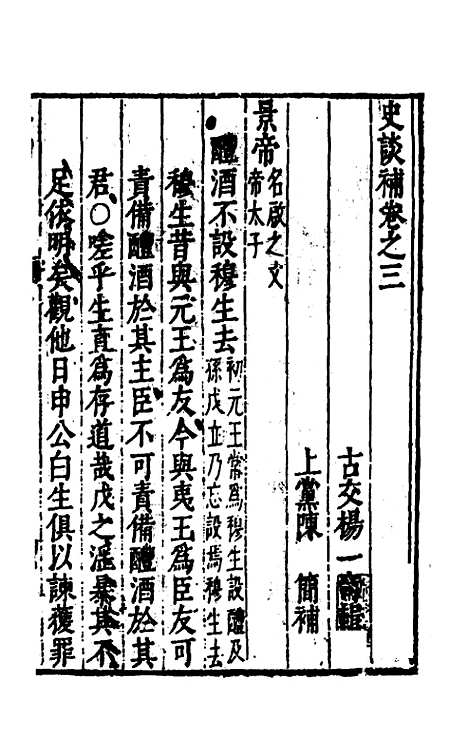 史談補卷之三
古交楊一奇輯
上黨陳　簡補
景帝名啟文帝太子之
醴酒不設穆生去初元王常爲穆生設醴及孫戊立乃忘設焉穆生去
穆生昔與元王爲友今與夷王爲臣友可
責備醴酒於其主臣不可責備醴酒於其
君○嗟乎生真爲存道哉戊之淫暴其不
足依明矣觀他日申公白生俱以諫獲罪